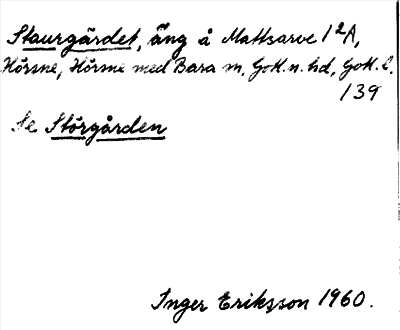 Staurgärdet, äng å Mattsarve 1²A,
Hörsne, Hörsne med Bara sn, Gotl. n. hd, Gotl. l.
139
Se Störgården
Inger Eriksson 1960.